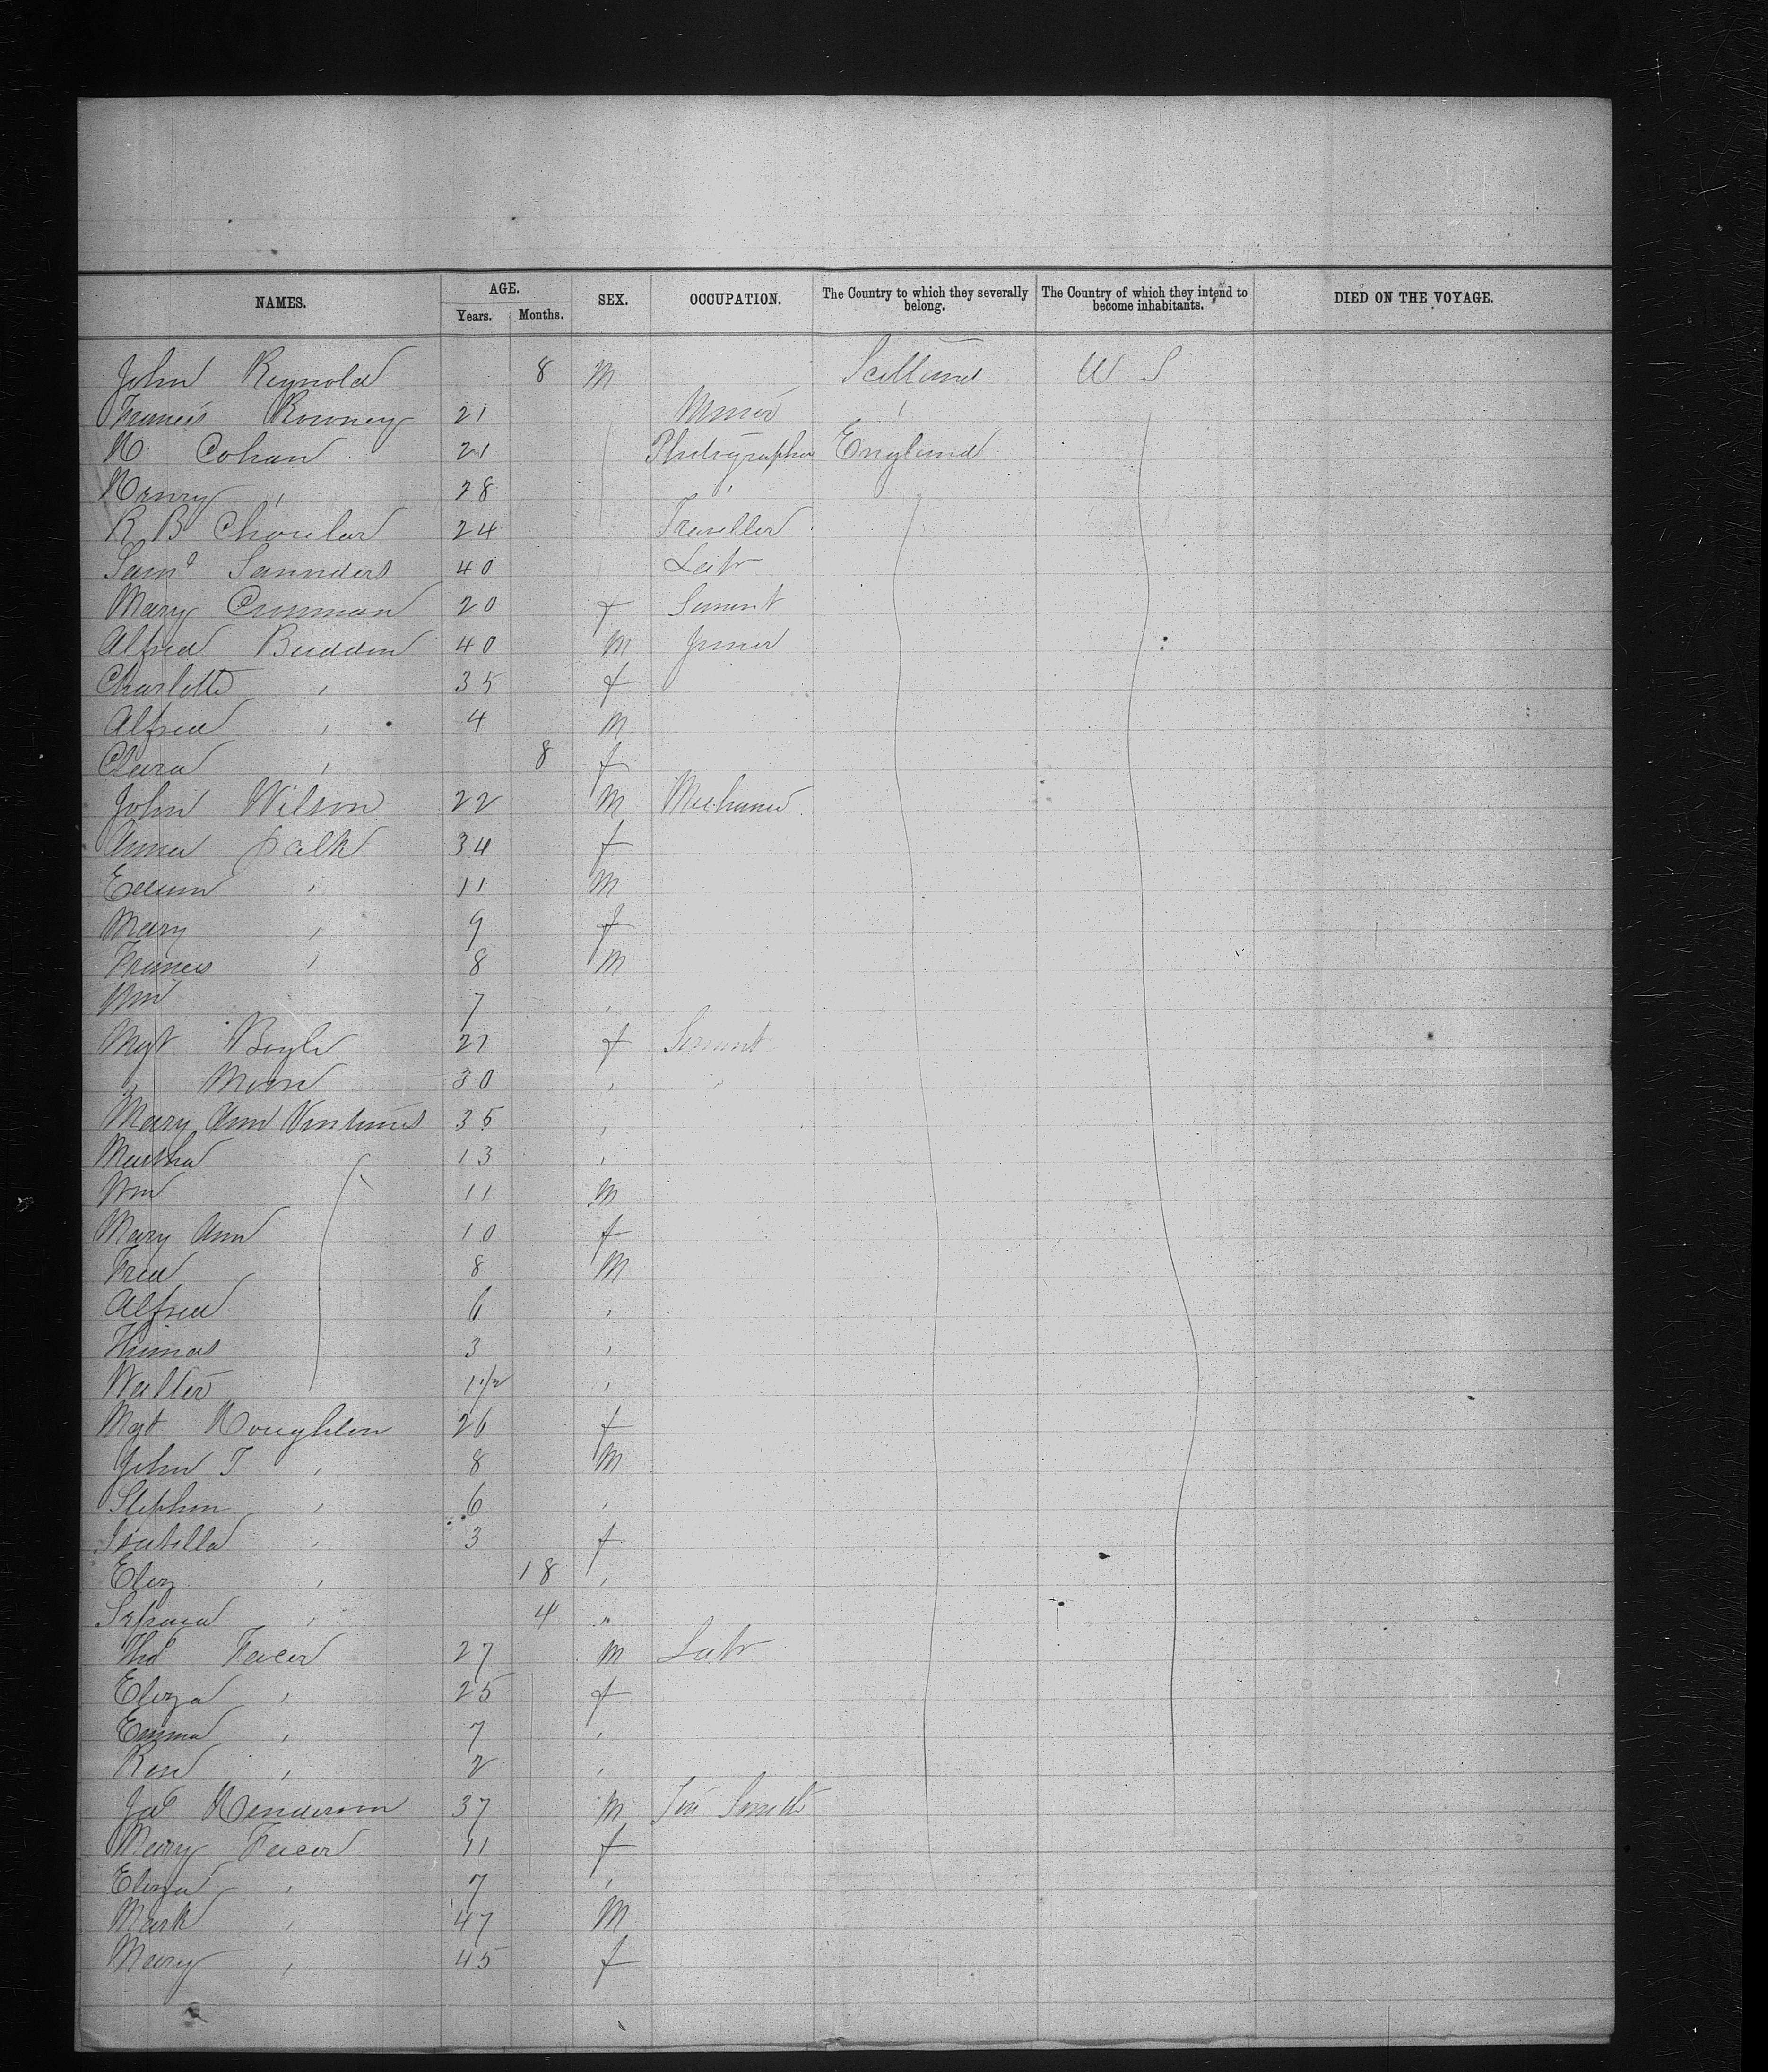 NAMES. AGE. SEX. OCCUPATION. The Country to which they severally belong. The Country of which they intend to become inhabitants. DIED ON THE VOYAGE.
Years. Months.
John Reynold 8 M Scotland U S
Francis Rowney 21 " Miner "
H Cohan 21 Photographer England
Henry " 28 "
R B Choular 24 Traveller
Saml Saunders 40 Labr
Mary Crossman 20 f Servant
Alfred Budden 40 M Joiner
Charlotte " 35 f
Alfred " 4 M
Clara " 8 f
John Wilson 22 M Mechanic
Anna Palk 34 f
" 11 M
Mary " 9 f
Francis " 8 M
Wm 7 "
Mgt Boyle 21 f Servant
" Moore 30 " "
Mary Ann 35 "
Martha 13 "
Wm 11 M
Mary Ann 10 f
Fred 8 M
Alfred 6 "
Thomas 3 "
Walter 1 1/2 "
Mgt Houghton 26 f
John T " 8 M
Stephen " 6 "
Isabella " 3 f
Eliz " 18 "
" 4 "
Thos Facer 27 M Labr
Eliza " 25 f
Emma " 7 "
Rose " 2 "
Jas Henderson 37 M Tin Smith
Mary Facer 11 f
Eliza " 7 "
Mark " 47 M
Mary " 45 f